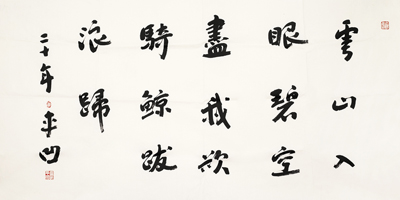 雲山入
眼碧空
盡我欲
騎鯨跋
浪歸
二十年平凹